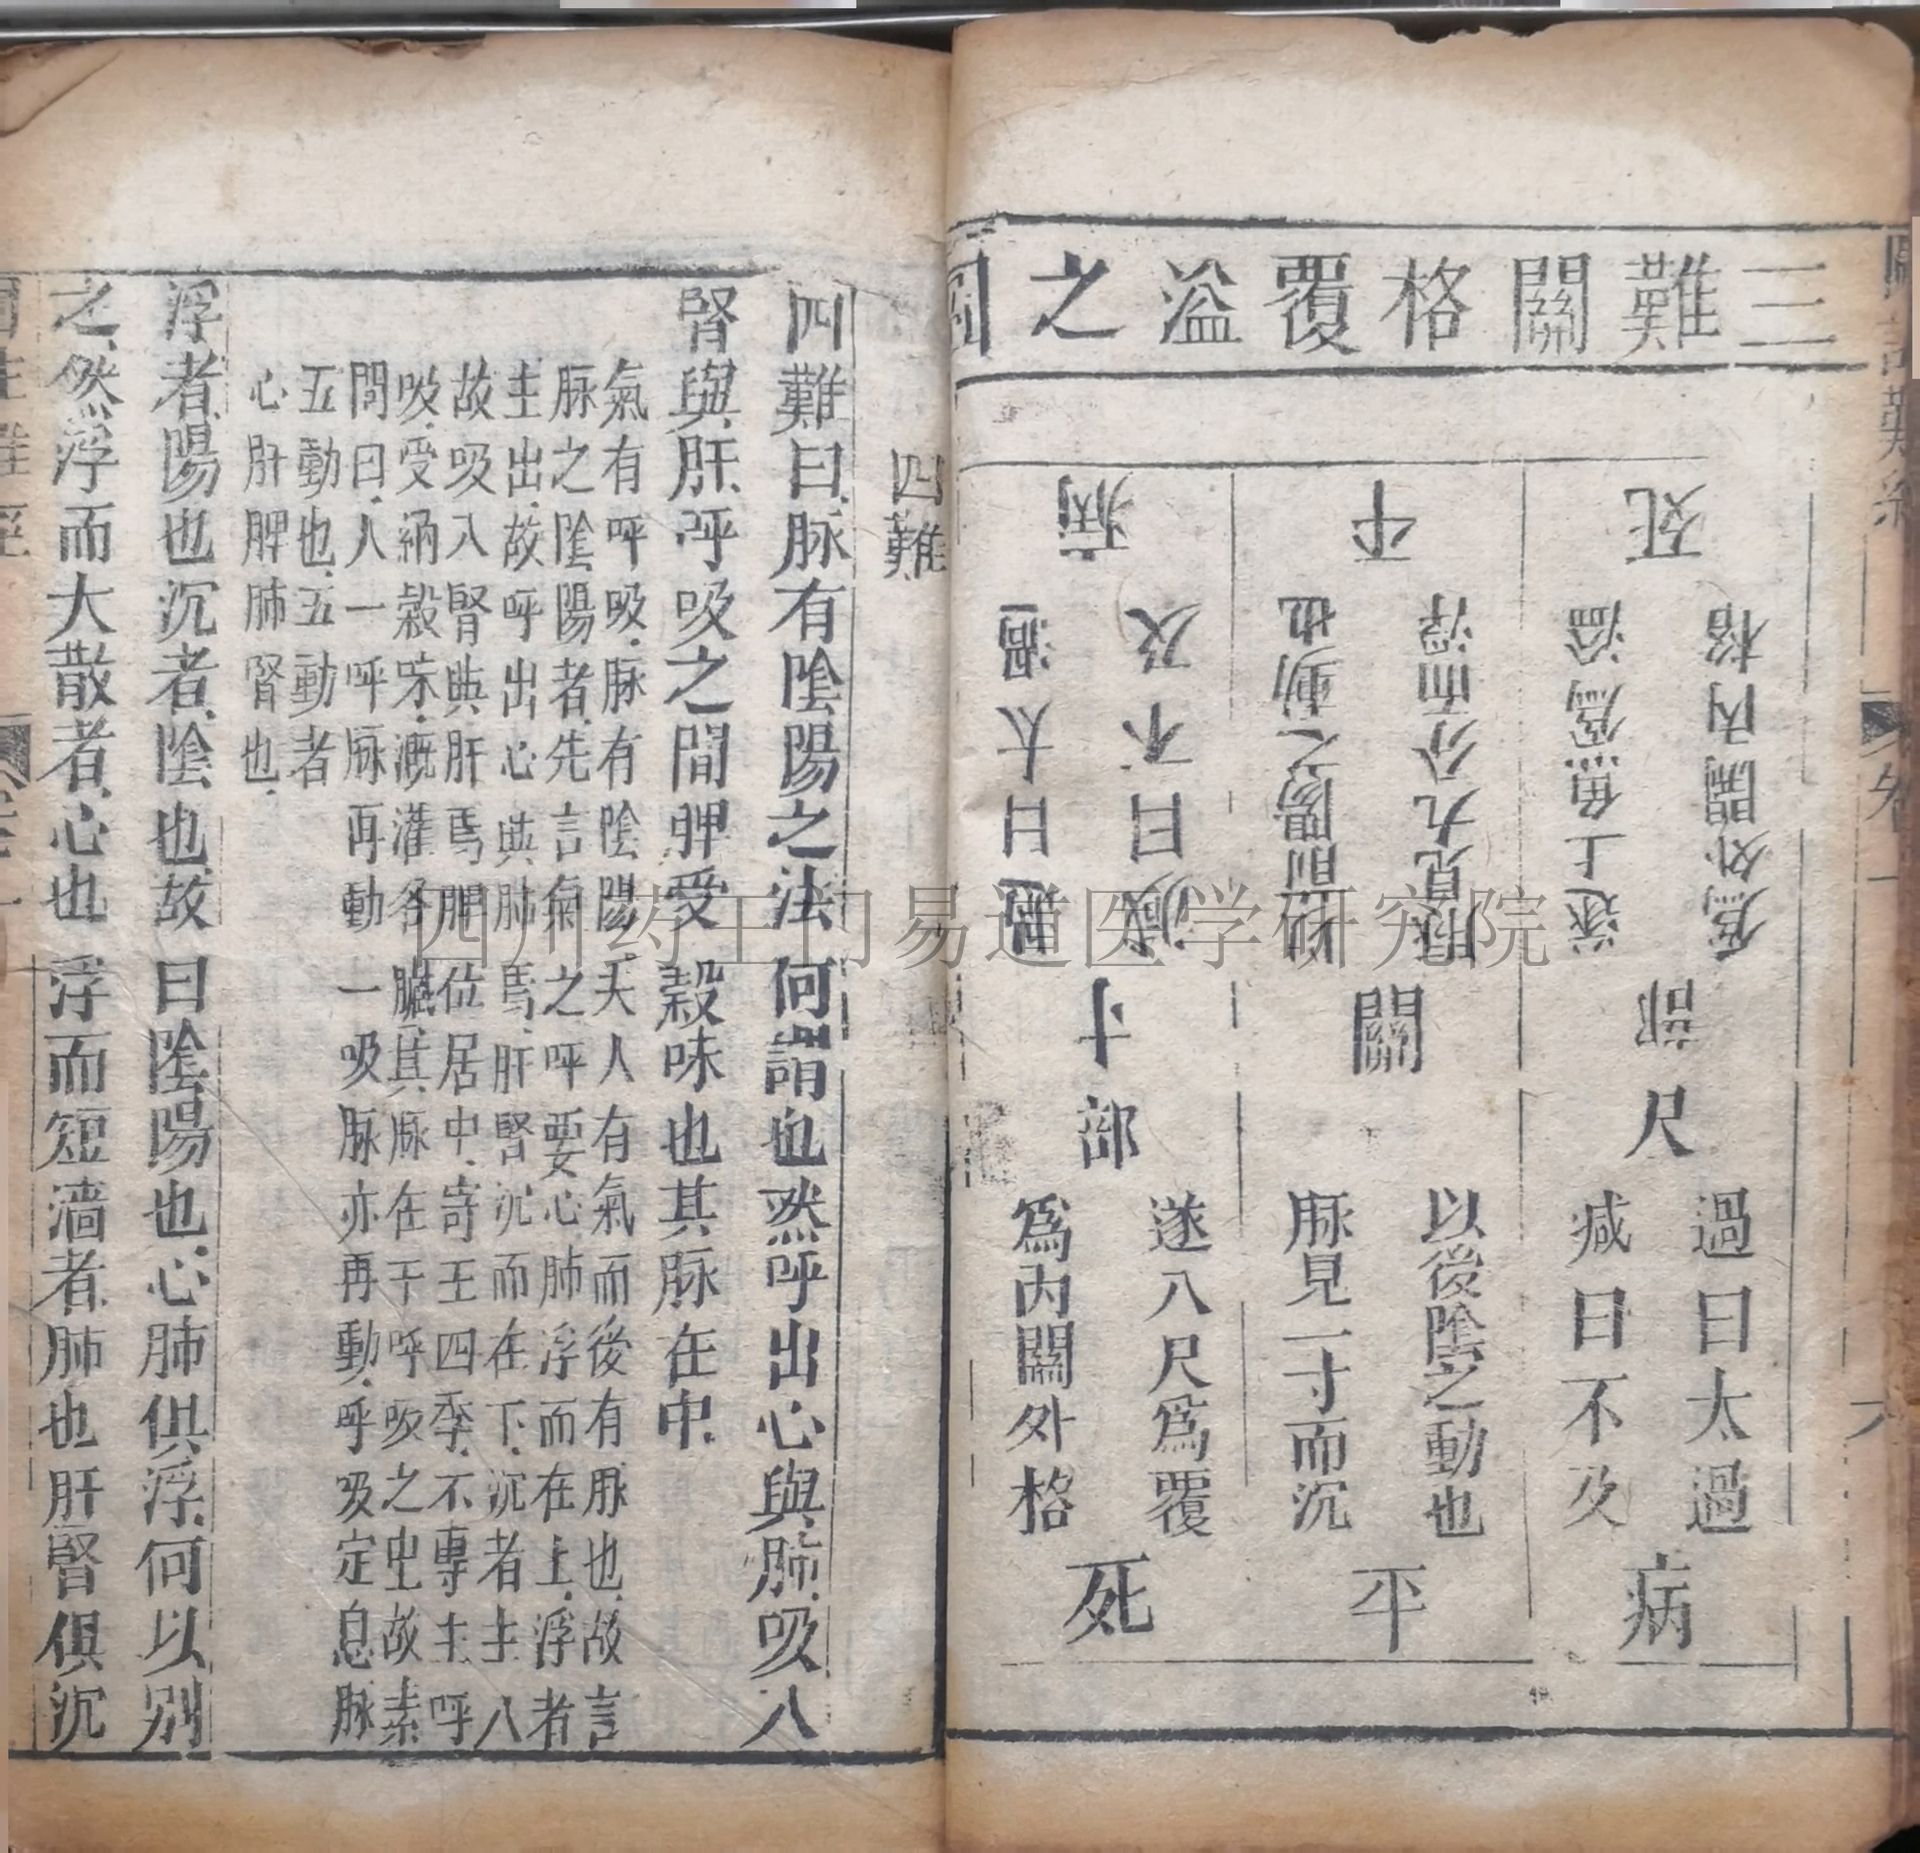 三難關格覆溢之圖
死
格
內
關
外
為
溢
為
魚
上
遂
部
尺
過曰太過
減曰不及
病
平
浮
而
分
九
見
脉
也
動
之
陽
前
以
關
以後陰之動也
脉見一寸而沉
平
病
及
不
曰
減
過
太
曰
過
寸
部
遂入尺為覆
為內關外格
死
四難
四難曰脉有陰陽之法何謂也然呼出心與肺吸入
腎與肝呼吸之間脾受穀味也其脉在中
氣有呼吸脉有陰陽夫人有氣而後有脉也故言
脉之陰陽者先言氣之呼要心肺浮而在上浮者
主出故呼出心與肺焉肝腎沉而在下沉者主入
故吸入腎與肝焉脾位居中寄王四季不專主呼
吸受納穀味溉灌各臟其脉在于呼吸之中故素
問曰人一呼脉再動一吸脉亦再動呼吸定息脉
五動也五動者
心肝脾肺腎也
浮者陽也沉者陰也故曰陰陽也心肺俱浮何以別
之然浮而大散者心也浮而短濇者肺也肝腎俱沉
四川药王门易道医学研究院